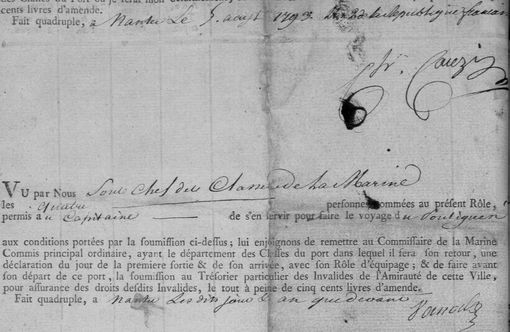 cents livres d'amende.
Fait quadruple, a Nantes Le 5. aoust 1793. de la Republique francai
VU par Nous Sous Chef des Classes de La Marine
les quatre personnes nommées au présent Rôle,
permis au Capitaine de s'en servir pour faire le voyage du Pouliguen
aux conditions portées par la soumission ci-dessus; lui enjoignons de remettre au Commissaire de la Marine
Commis principal ordinaire, ayant le département des Classes du port dans lequel il fera son retour, une
déclaration du jour de la premiere sortie & de son arrivée, avec son Rôle d'équipage; & de faire avant
son départ de ce port, la soumission au Trésorier particulier des Invalides de l'Amirauté de cette Ville,
pour assurance des droits desdits Invalides, le tout à peine de cinq cents livres d'amende.
Fait quadruple, a Nantes Lesdits jour & an que devant